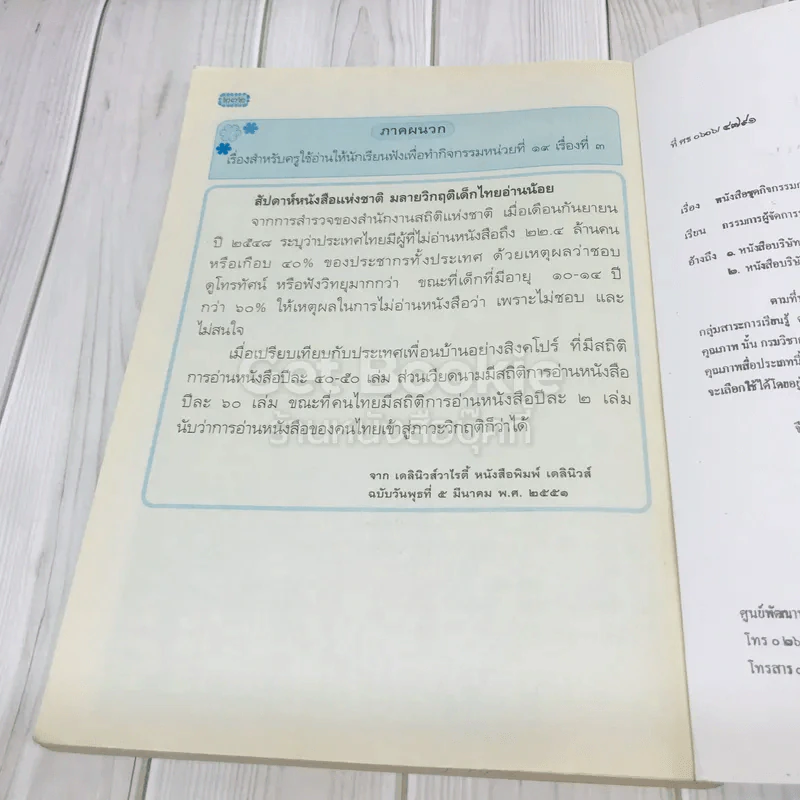 ภาคผนวก
เรื่องสำหรับครูใช้อ่านให้นักเรียนฟังเพื่อทำกิจกรรมหน่วยที่ ๑๙ เรื่องที่ ๓
สัปดาห์หนังสือแห่งชาติ มลายวิกฤติเด็กไทยอ่านน้อย
จากการสำรวจของสำนักงานสถิติแห่งชาติ เมื่อเดือนกันยายน
ปี ๒๕๔๘ ระบุว่าประเทศไทยมีผู้ที่ไม่อ่านหนังสือถึง ๒๒.๔ ล้านคน
หรือเกือบ ๔๐% ของประชากรทั้งประเทศ ด้วยเหตุผลว่าชอบ
ดูโทรทัศน์ หรือฟังวิทยุมากกว่า ขณะที่เด็กที่มีอายุ ๑๐-๑๔ ปี
กว่า ๖๐% ให้เหตุผลในการไม่อ่านหนังสือว่า เพราะไม่ชอบ และ
ไม่สนใจ
เมื่อเปรียบเทียบกับประเทศเพื่อนบ้านอย่างสิงคโปร์ ที่มีสถิติ
การอ่านหนังสือปีละ ๔๐-๕๐ เล่ม ส่วนเวียดนามมีสถิติการอ่านหนังสือ
ปีละ ๖๐ เล่ม ขณะที่คนไทยมีสถิติการอ่านหนังสือปีละ ๒ เล่ม
นับว่าการอ่านหนังสือของคนไทยเข้าสู่ภาวะวิกฤติก็ว่าได้
จาก เดลินิวส์วาไรตี้ หนังสือพิมพ์ เดลินิวส์
ฉบับวันพุธที่ ๕ มีนาคม พ.ศ. ๒๕๕๑
ร้านหนังสือบุ๊คที่
ที่ ศธ ๐๖๐๖/ ๔๗๙๑
เรื่อง หนังสือชุดกิจกรรม
เรียน กรรมการผู้จัดการ
อ้างถึง ๑. หนังสือบริษัท
๒. หนังสือบริษั
ตามที่
กลุ่มสาระการเรียนรู้
คุณภาพ นั้น กรมวิชา
คุณภาพสื่อประเภทนี้
จะเลือกใช้ได้โดยอยู่
ศูนย์พัฒนา
โทร ๐ ๒๖
โทรสาร ๐